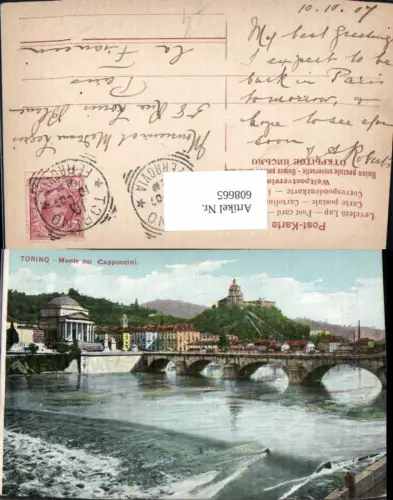 10.10.07
My best greetings
I expect to be
back in Paris
tomorrow, &
hope to see you
soon
Monsieur et Madame
Rue Louis Blanc
Paris
La France
TORINO
FERROVIA
TORINO
FERROVIA
Artikel Nr.
608665
Post-Karte
Levelező Lap - Post card
Carte postale - Cartolina
Correspondenzkarte
Weltpostverein
Union postale universelle
ОТКРЫТОЕ ПИСЬМО
TORINO - Monte dei Cappuccini.